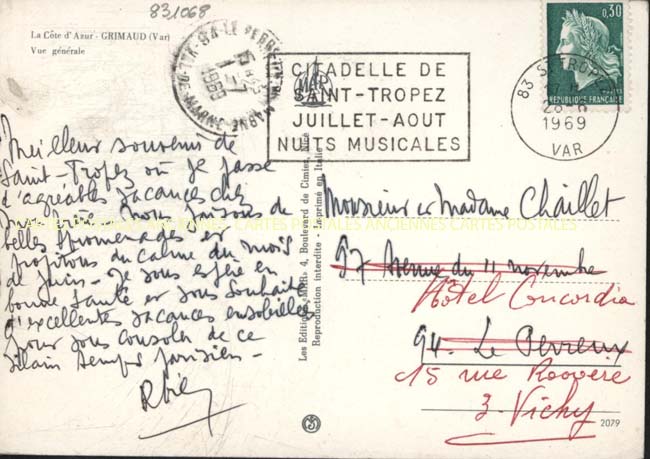 831068
La Côte d'Azur - GRIMAUD (Var)
Vue générale
1-7
1969
CITADELLE DE
SAINT-TROPEZ
JUILLET-AOUT
NUITS MUSICALES
0,30
RÉPUBLIQUE FRANÇAISE
83 ST TROPEZ
1969
VAR
Meilleur souvenir de
Saint-Tropez où je passe
d'agréables vacances chez
mon frère. Nous faisons de
belles promenades et
profitons du calme du mois
de juin. Je vous espère en
bonne santé et vous souhaite
d'excellentes vacances ensoleillées
pour vous consoler de ce
vilain temps parisien -
Les Editions «MAR» 4, Boulevard de Cimiez, Nice
Reproduction interdite - Imprimé en Italie
Monsieur et Madame Chaillet
97 Avenue du 11 novembre
Hôtel Concordia
94. Le Perreux
15 rue Roovère
3. Vichy
2079
CARTES POSTALES ANCIENNES CARTES POSTALES